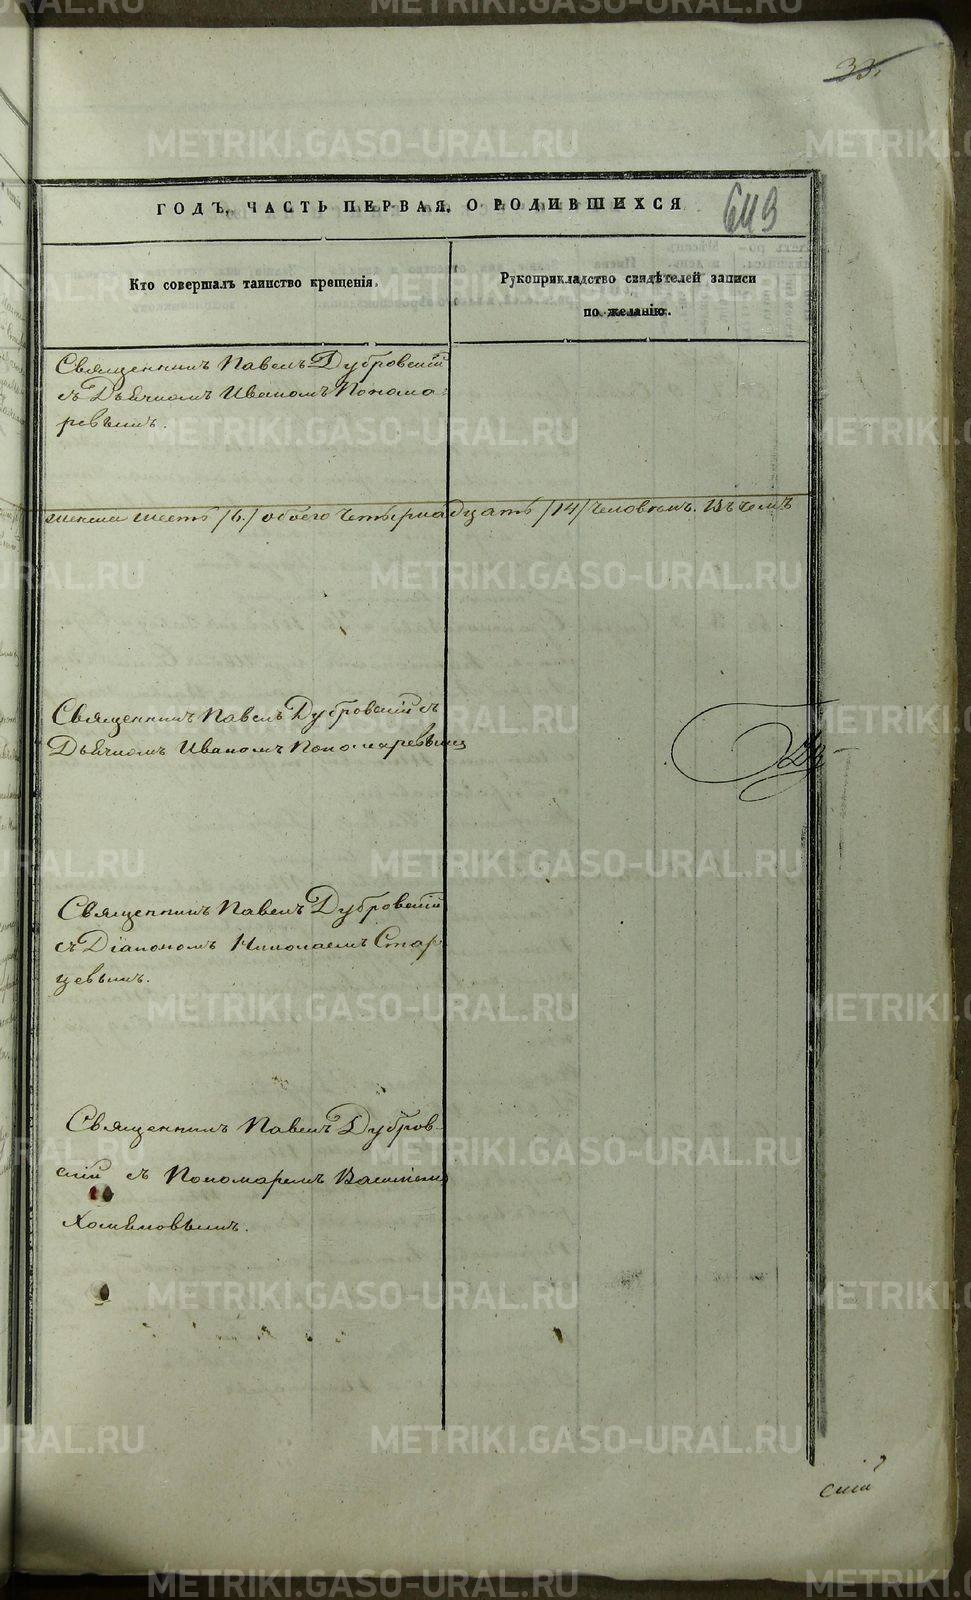 33.
ГОДЪ, ЧАСТЬ ПЕРВАЯ, О РОДИВШИХСЯ
643
Кто совершалъ таинство крещенія.
Рукоприкладство свидѣтелей записи
по желанію.
Священникъ Павелъ Дубровскій
съ Дьячкомъ Иваномъ Понома-
ревымъ.
женска шесть /6./ обоего четырнадцать /14/ человѣкъ. Въ чемъ
Священникъ Павелъ Дубровскій съ
Дьячкомъ Иваномъ Пономаревымъ
Священникъ Павелъ Дубровскій
съ Діакономъ Николаемъ Стар-
цевымъ.
Священникъ Павелъ Дубров-
скій съ Пономаремъ Василіемъ
Хомяковымъ.
скій
METRIKI.GASO-URAL.RU